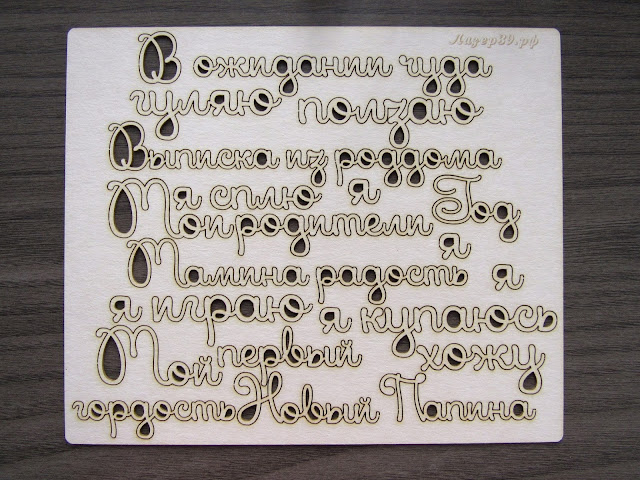 Лидер89.рф
В ожидании чуда
гуляю ползаю
Выписка из роддома
я сплю я Год
Мои родители
я
Мамина радость я
я играю я купаюсь
Мой первый хожу
гордость Новый Папина